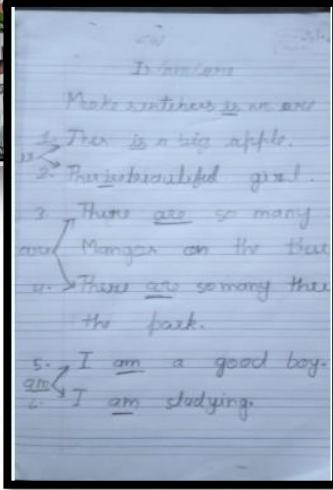 CW
Is/am/are
Make sentences is am are
1. Ther is a big apple.
is
2. Ther is beautiful girl.
3. There are so many
are Mangos on the tree
4. There are so many thee
the park.
5. I am a good boy.
am
6. I am studying.